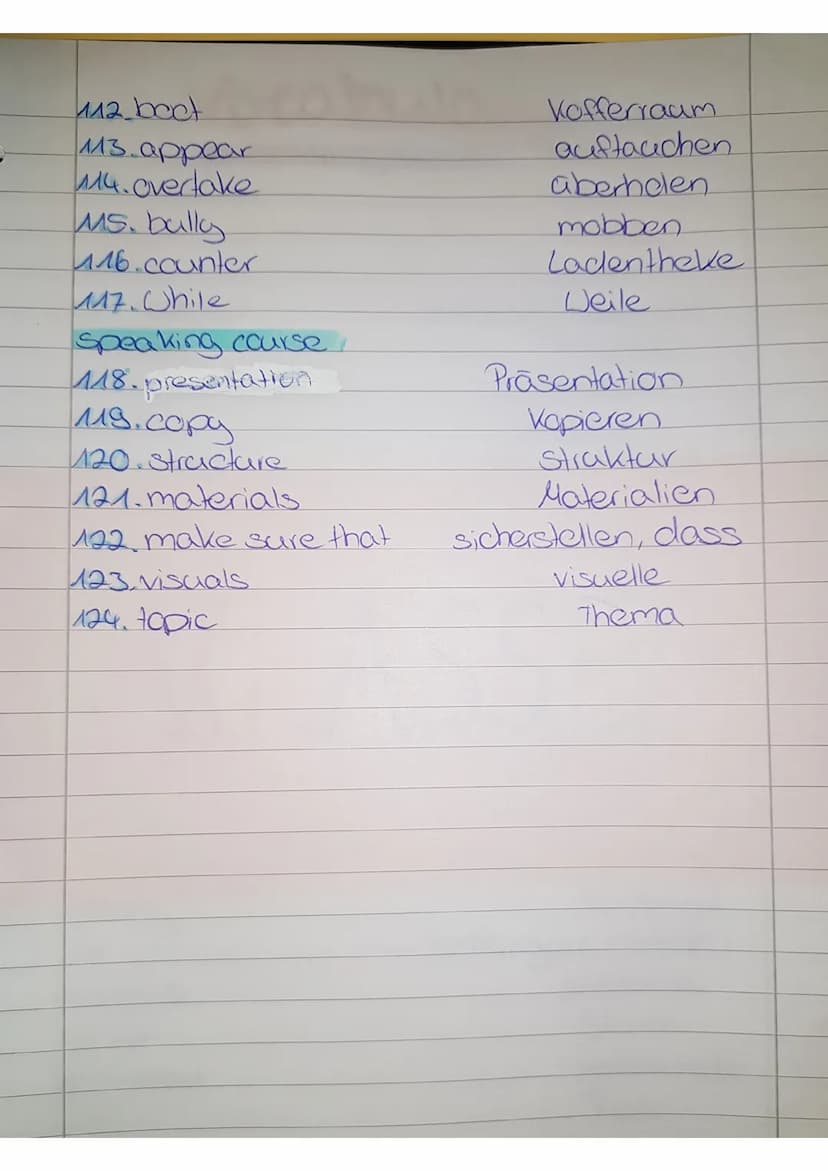 112. boot Kofferraum
113. appear auftauchen
114. overtake überholen
115. bully mobben
116. counter Ladentheke
117. While Weile
speaking course
118. presentation Präsentation
119. copy Kopieren
120. structure Struktur
121. materials Materialien
122. make sure that sicherstellen, dass
123. visuals visuelle
124. topic Thema